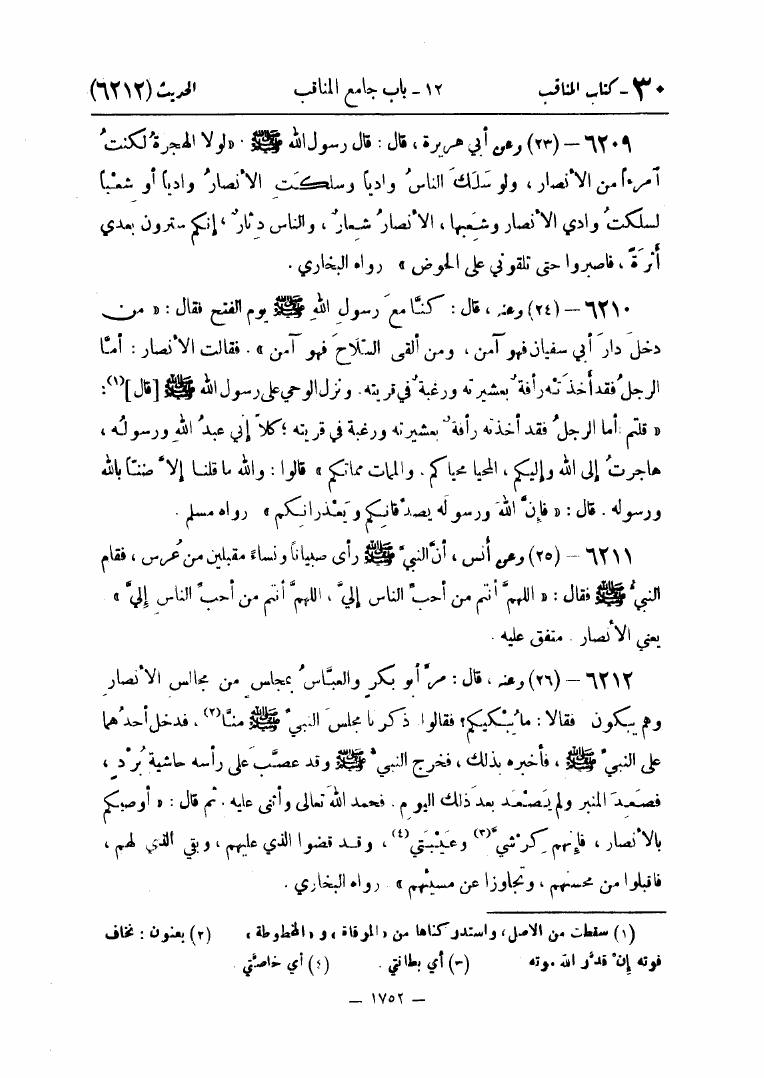 ٣٠ - كتاب المناقب ١٢ - باب جامع المناقب الحديث (٦٢١٢)
٦٢٠٩ - (٢٣) وعن أبي هريرة ، قال : قال رسول الله ﷺ : «لولا الهجرةُ لكنتُ
آمرءاً من الأنصار ، ولو سَلَكَ الناسُ وادياً وسلكَتِ الأنصارُ وادياً أو شِعْباً
لسلكتُ وادي الأنصار وشِعَبها ، الأنصارُ شِعارٌ ، والناس دِثارٌ ، إنكم سترون بعدي
أَثَرَةً ، فاصبروا حتى تلقوني على الحوض » رواه البخاري .
٦٢١٠ - (٢٤) وعنه ، قال : كنَّا معَ رسولِ اللهِ ﷺ يوم الفتح فقال : « من
دخلَ دارَ أبي سفيان فهو آمن ، ومن ألقى السِّلاحَ فهو آمن » . فقالت الأنصار : أمَّا
الرجلُ فقد أخذَتْه رأفةٌ بعشيرته ورغبةٌ في قريته . ونزل الوحي على رسول الله ﷺ [قال](١) :
« قلتم : أما الرجلُ فقد أخذته رأفةٌ بعشيرته ورغبة في قريته ؛ كلاّ إني عبدُ اللهِ ورسولُه ،
هاجرتُ إلى الله وإليكم ، المحيا محياكم . والممات مماتكم » قالوا : والله ما قلنا إلاَّ ضنّاً بالله
ورسوله . قال : « فإنَّ اللهَ ورسولَه يصدِّقانِكم ويَعْذرانِكم » رواه مسلم .
٦٢١١ - (٢٥) وعن أنس ، أنَّ النبيَّ ﷺ رأى صبياناً ونساءً مقبلين من عُرس ، فقام
النبيُّ ﷺ فقال : « اللهمَّ أنتم من أحبِّ الناس إليَّ ، اللهمَّ أنتم من أحبِّ الناسِ إليَّ » .
يعني الأنصار . متفق عليه .
٦٢١٢ - (٢٦) وعنه ، قال : مرَّ أبو بكرٍ والعبَّاسُ بمجلسٍ من مجالس الأنصارِ
وهم يبكون فقالا : ما يُبْكيكم؟ فقالوا ذكرنا مجلسَ النبيِّ ﷺ منَّا(٢) ، فدخل أحدُهما
على النبيِّ ﷺ ، فأخبره بذلك ، فخرج النبيُّ ﷺ وقد عصَّبَ على رأسه حاشية بُرْدٍ ،
فصَعِدَ المنبر ولم يَصْعَد بعد ذلك اليوم . فحمد اللهَ تعالى وأثنى عليه . ثم قال : « أوصيكم
بالأنصار ، فإنهم كَرْشي(٣) وعَيْبَتي(٤) ، وقد قضوا الذي عليهم ، وبقي الذي لهم ،
فاقبلوا من محسنهم ، وتجاوزا عن مسيئهم » . رواه البخاري .
(١) سقطت من الاصل، واستدركناها من «المرقاة» و«المخطوطة» (٢) يعنون : نخاف
فوته إنْ قدَّر الله موته (٣) أي بطانتي . (٤) أي خاصَّتي .
- ١٧٥٢ -